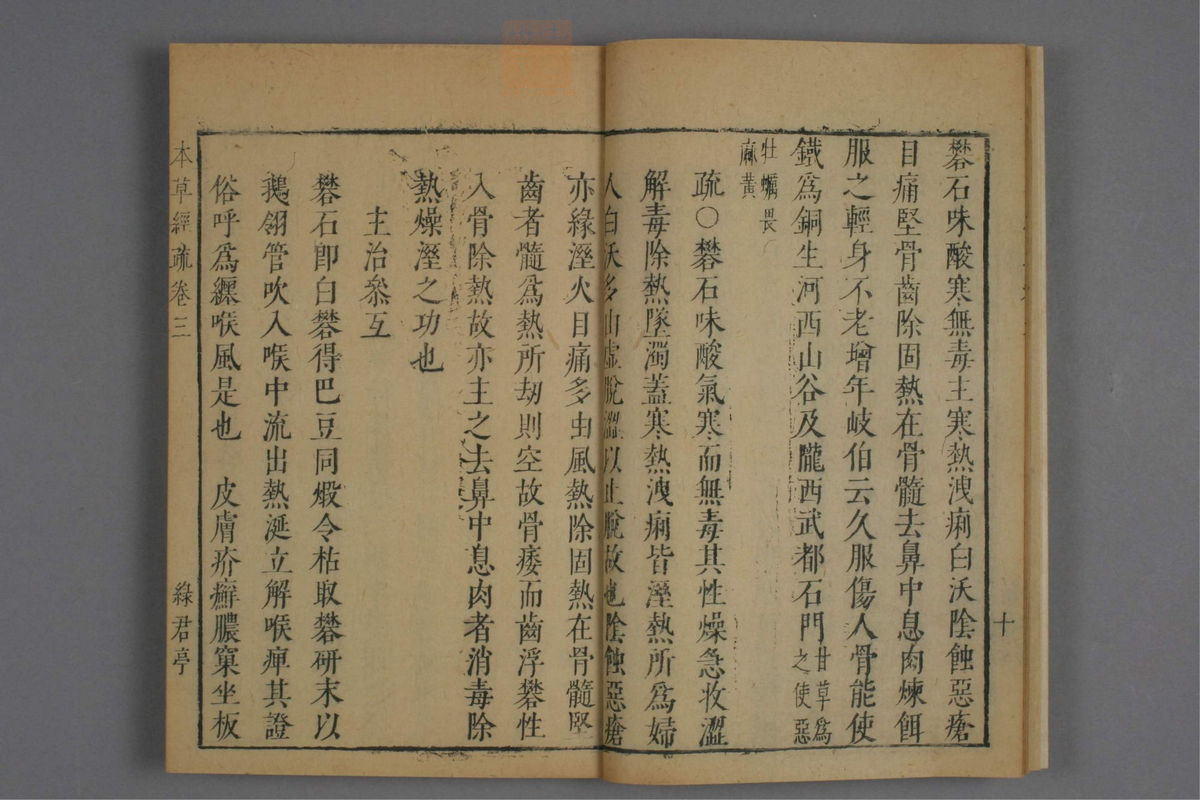 礬石味酸寒無毒主寒熱洩痢白沃陰蝕惡瘡
目痛堅骨齒除固熱在骨髓去鼻中息肉煉餌
服之輕身不老增年岐伯云久服傷人骨能使
鐵爲銅生河西山谷及隴西武都石門甘草爲之使惡
牡蠣畏麻黃
疏〇礬石味酸氣寒而無毒其性燥急收澀
解毒除熱墜濁蓋寒熱洩痢皆溼熱所爲婦
人白沃多由虛脫澀以止脫故也陰蝕惡瘡
亦緣溼火目痛多由風熱除固熱在骨髓堅
齒者髓爲熱所劫則空故骨痿而齒浮礬性
入骨除熱故亦主之去鼻中息肉者消毒除
熱燥溼之功也
主治叅互
礬石卽白礬得巴豆同煅令枯取礬研末以
鵝翎管吹入喉中流出熱涎立解喉痺其證
俗呼爲纏喉風是也 皮膚疥癬膿窠坐板
本草經疏卷三
綠君亭
十